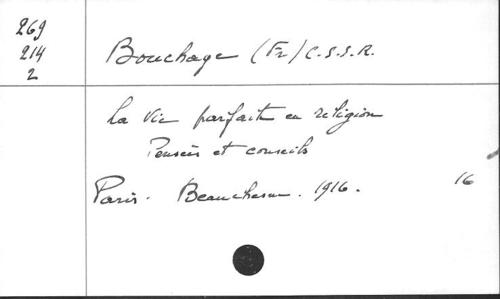 269
214
2
Bouchage (Fr) C.S.S.R.
La Vie parfaite en religion
Pensées et conseils
Paris. Beauchesne. 1916. 16